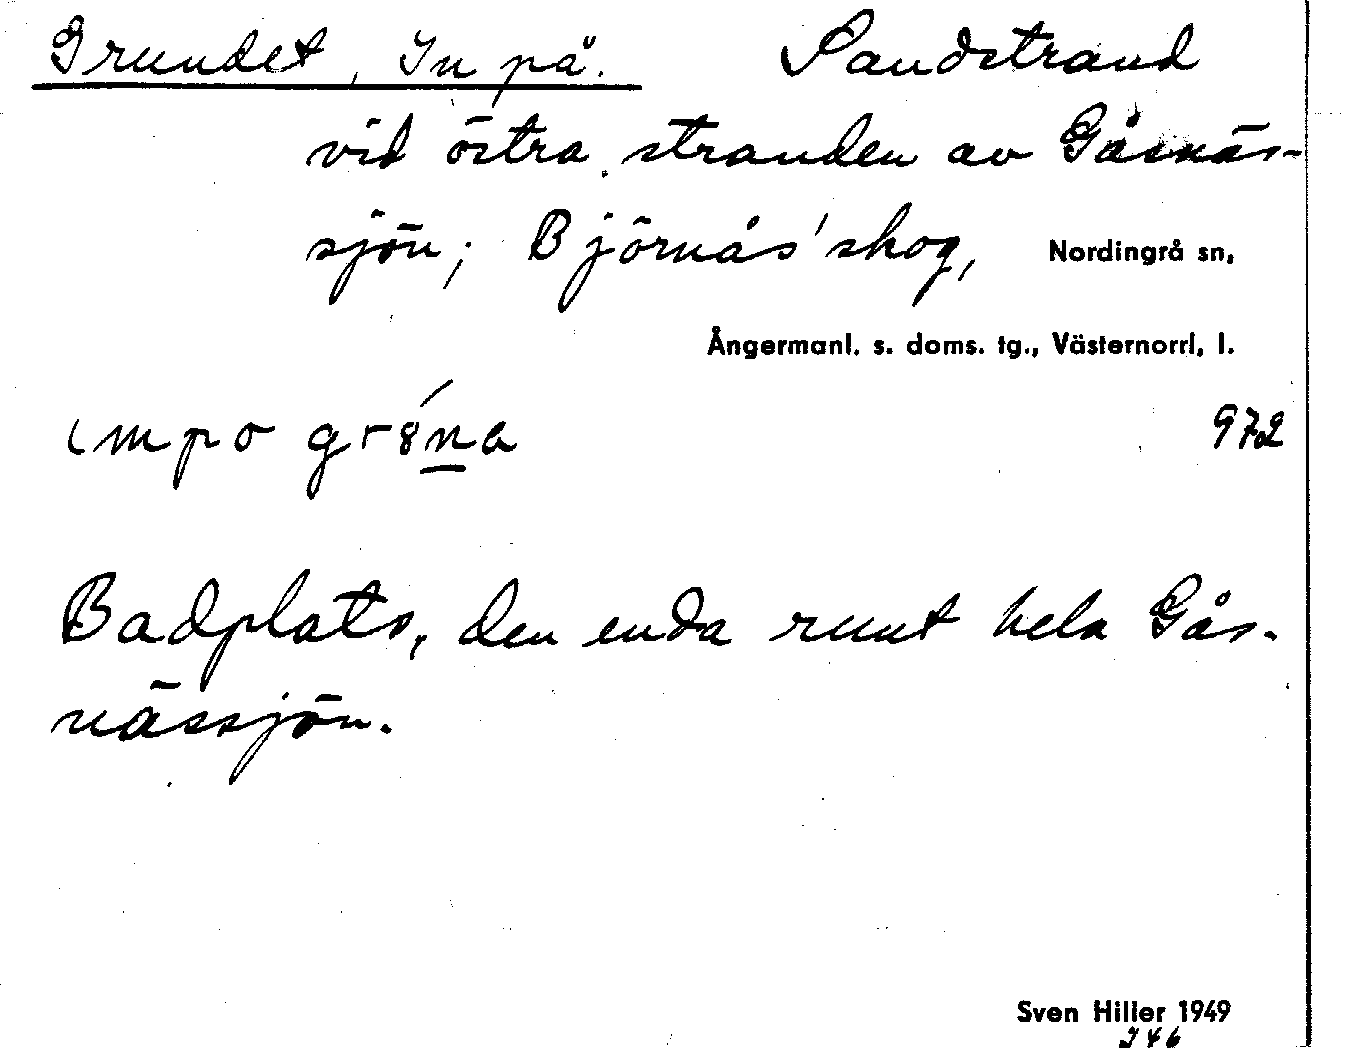 Grundet, In på. Sandstrand
vid östra stranden av Gåsnäs-
sjön; Björnås' skog, Nordingrå sn,
Ångermanl. s. doms. tg., Västernorrl. l.
ɩmpo gr8́na 972
Badplats, den enda runt hela Gås-
nässjön.
Sven Hiller 1949